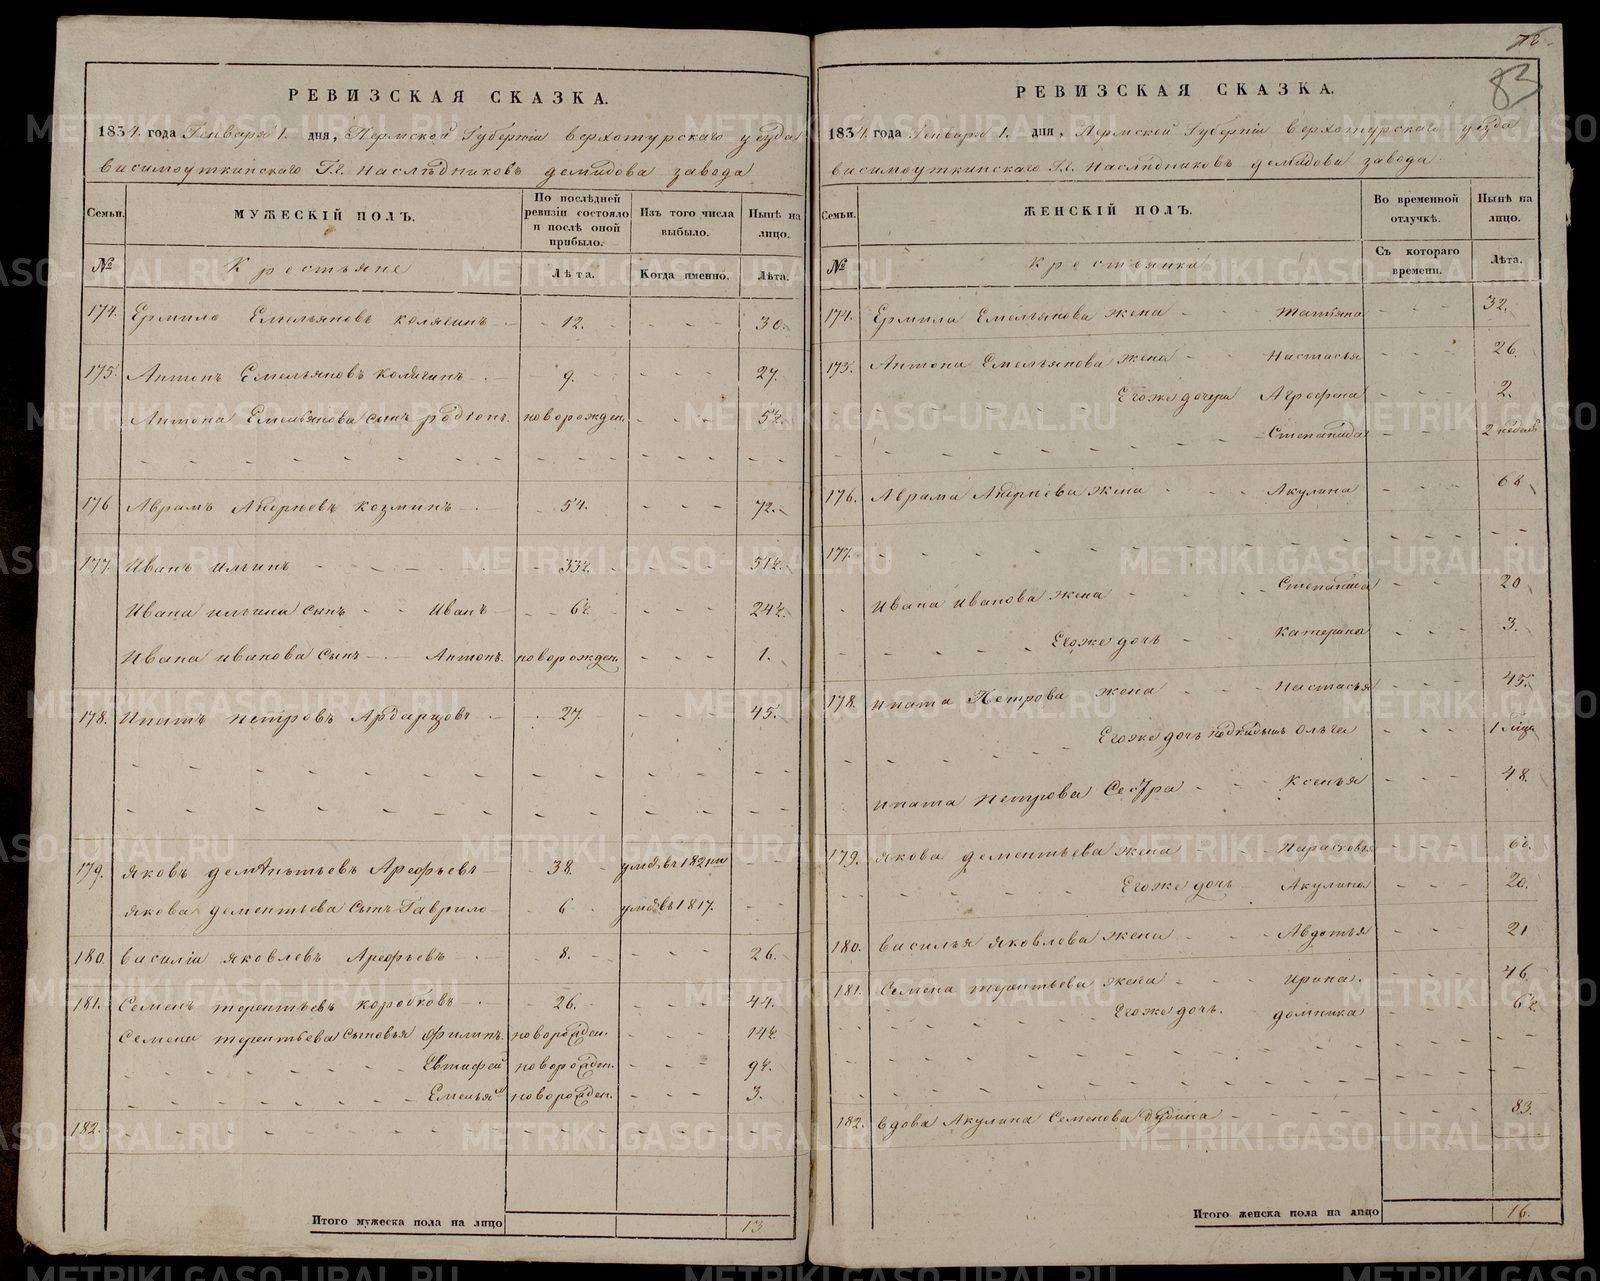 РЕВИЗСКАЯ СКАЗКА.
1834. года Генваря 1. дня, Пермской Губернiи верхотурскаго уезда
висимоуткинскаго Г.г. наслѣдниковъ демидова завода
Семьи. МУЖЕСКIЙ ПОЛЪ. По послѣдней ревизiи состояло и послѣ оной прибыло. Изъ того числа выбыло. Нынѣ на лицо.
№ Крестьяне Лѣта. Когда именно. Лѣта.
174. Ермило Емельяновъ колясинъ 12. 30.
175. Антонъ Емельяновъ 9. 27.
Антона Емельянова сынъ родiонъ. новорожден. 5½.
176 Аврамъ Андреевъ козминъ 54. 72.
177. Иванъ ильинъ 33½. 51½.
Ивана ильина сынъ Иванъ 6½. 24½.
Ивана иванова сынъ Антонъ. новорожден. 1.
178. Ипатъ петровъ 27. 45.
179. яковъ дементьевъ Арефьевъ 38.
якова дементьева сынъ Гаврило 6 1817.
180. василiй яковлевъ Арефьевъ 8. 26.
181. Семенъ терентьевъ коробковъ 26. 44.
Семена терентьева сыновья филипъ. новорожден. 14½.
Евтифей новорожден. 9½.
Емельян новорожден. 3.
182.
Итого мужеска пола на лицо 13.
72
83
РЕВИЗСКАЯ СКАЗКА.
1834. года Генваря 1. дня, Пермской Губернiи верхотурскаго уезда
висимоуткинскаго Г.г. наслѣдниковъ демидова завода
Семьи. ЖЕНСКIЙ ПОЛЪ. Во временной отлучкѣ. Нынѣ на лицо.
№ крестьянки Съ котораго времени. Лѣта.
174. Ермила Емельянова жена Татьяна 32.
175. Антона Емельянова жена Настасья 26.
Его же дочери Агрофена 2.
Степанида 2 недель
176. Аврама Андреева жена Акулина 68
177.
Ивана иванова жена Степанида 20
Его же дочь катерина 3.
178. ипата Петрова жена Настасья 45.
Его же дочь подкидышъ Ольга
ипата петрова Сестра ксенья 48.
179. якова дементьева жена Парасковья
Его же дочь Акулина 20.
180. василья яковлева жена Авдотья 21
181. Семена терентьева жена ирина. 46
Его же дочь. домника 6½.
182. вдова Акулина Семенова 83.
Итого женска пола на лицо 16.
METRIKI.GASO-URAL.RU